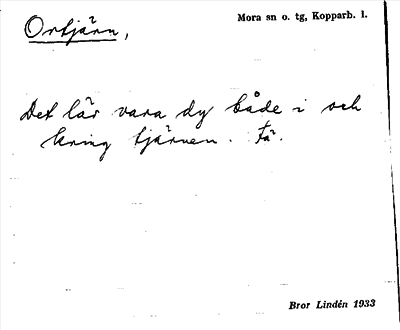 Ortjärn,
Mora sn o. tg, Kopparb. l.
Det lär vara dy både i och
kring tjärnen.
Bror Lindén 1933